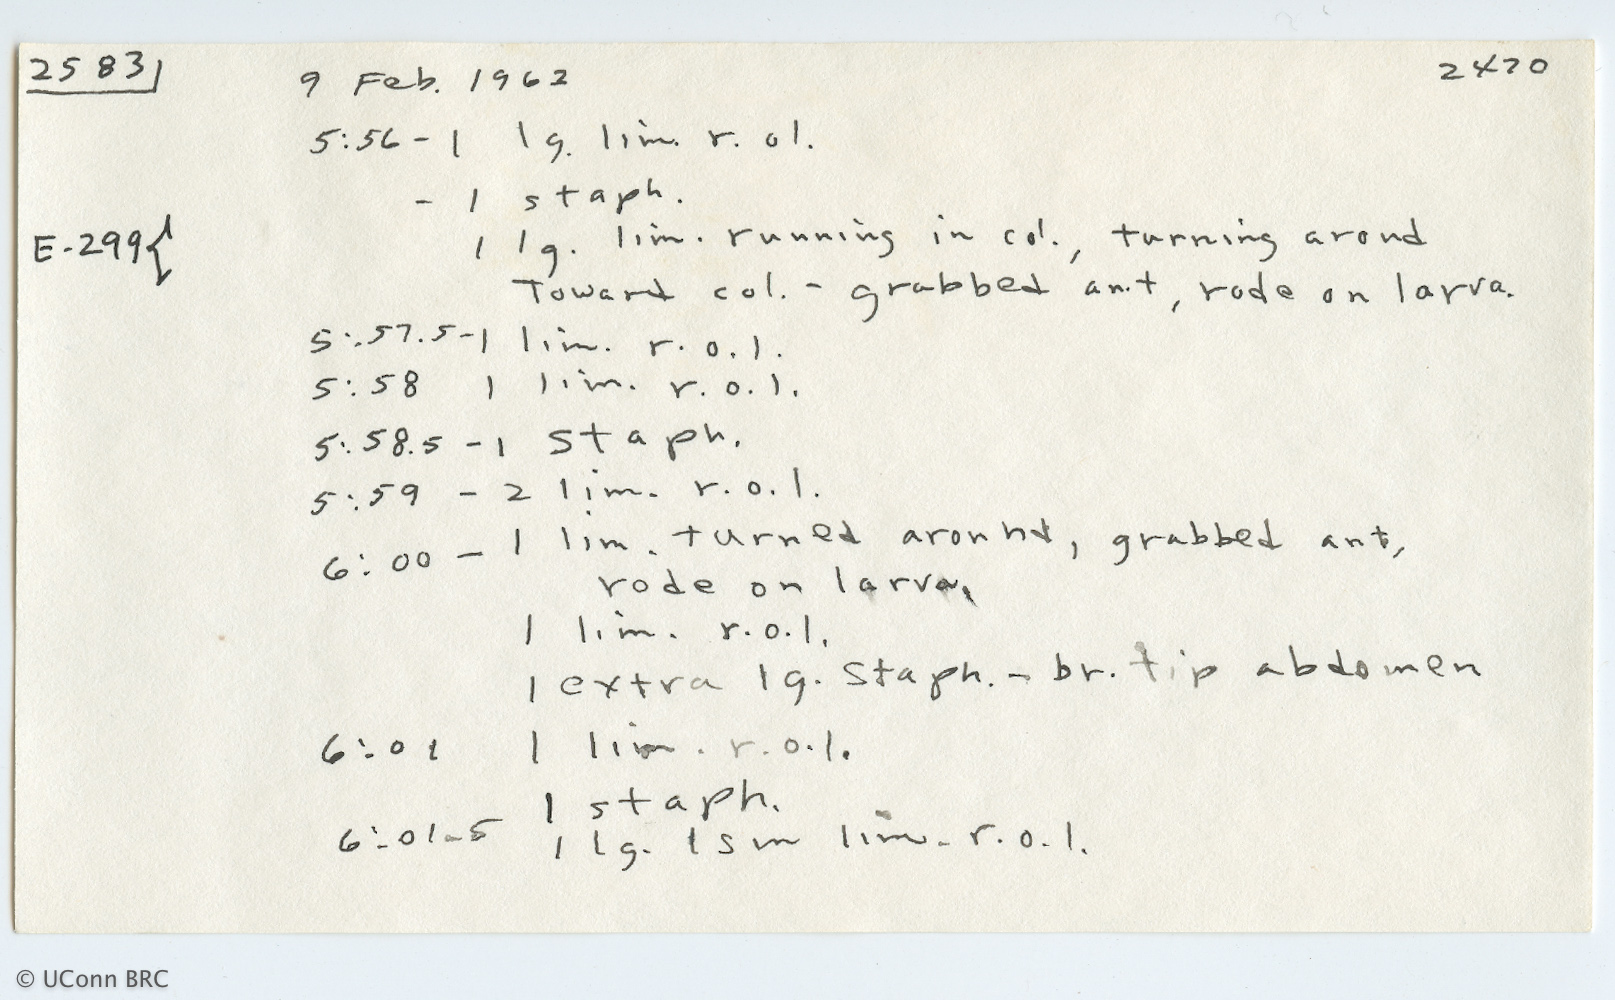 2583
9 Feb. 1962
2470
5:56 - 1 lg. lim. r. ol.
- 1 staph.
E-299{
1 lg. lim. running in col., turning arond
Toward col. - grabbed ant, rode on larva.
5:57.5 - 1 lim. r.o.l.
5:58 1 lim. r.o.l.
5:58.5 - 1 staph.
5:59 - 2 lim. r.o.l.
6:00 - 1 lim. turned around, grabbed ant,
rode on larva.
1 lim. r.o.l.
1 extra lg. staph. - br. tip abdomen
6:01 1 lim. r.o.l.
1 staph.
6:01.5 1 lg. 1 sm lim. r.o.l.
© UConn BRC